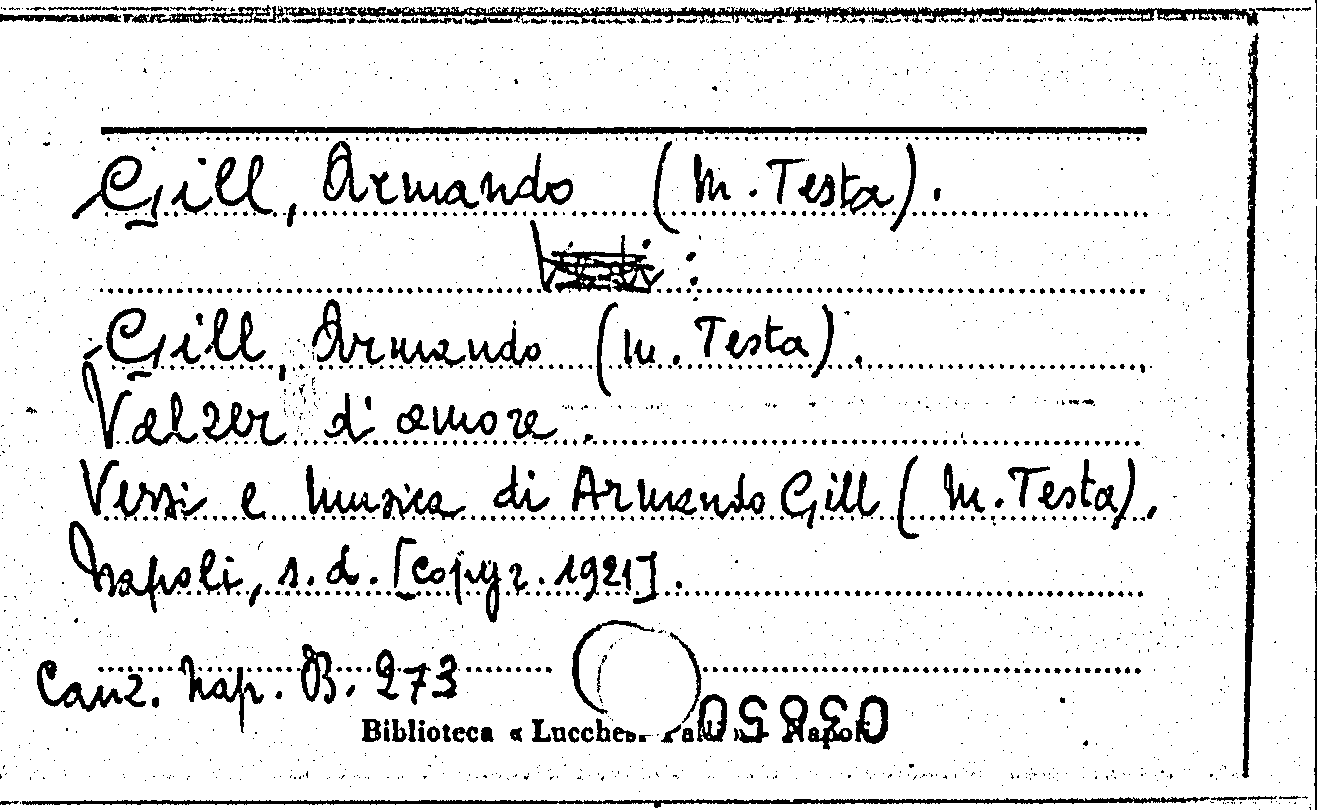 Gill, Armando (M. Testa).
:
Gill, Armando (M. Testa).
Valzer d'amore.
Versi e musica di Armando Gill (M. Testa).
Napoli, s.d. [copyr. 1921].
Canz. Nap. B. 273
Biblioteca « Lucchesi Palli » - Napoli